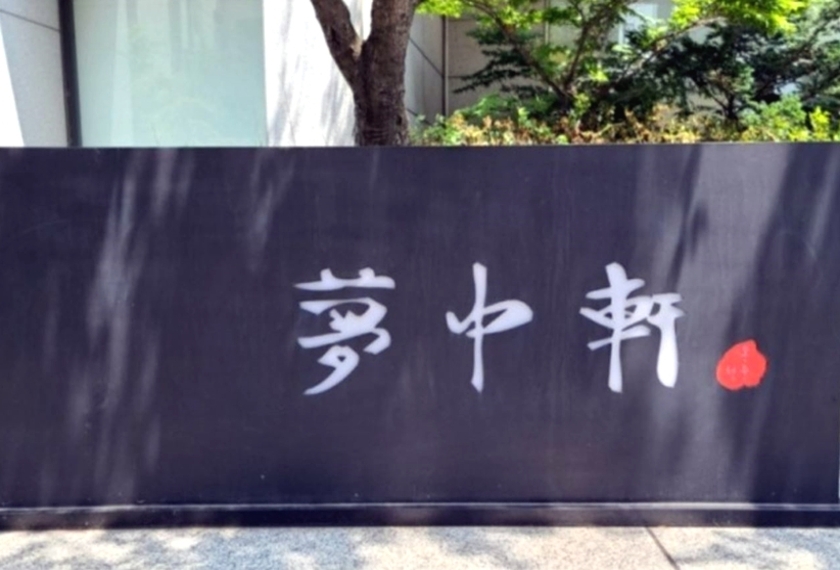 夢中軒